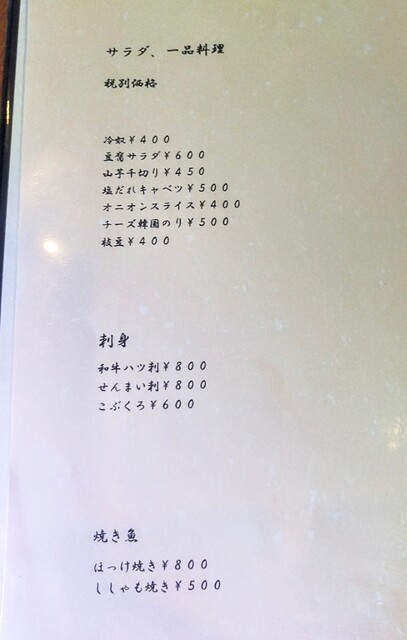 サラダ、一品料理
税別価格
冷奴￥４００
豆腐サラダ￥６００
山芋千切り￥４５０
塩だれキャベツ￥５００
オニオンスライス￥４００
チーズ韓国のり￥５００
枝豆￥４００
刺身
和牛ハツ刺￥８００
せんまい刺￥８００
こぶくろ￥６００
焼き魚
ほっけ焼き￥８００
ししゃも焼き￥５００